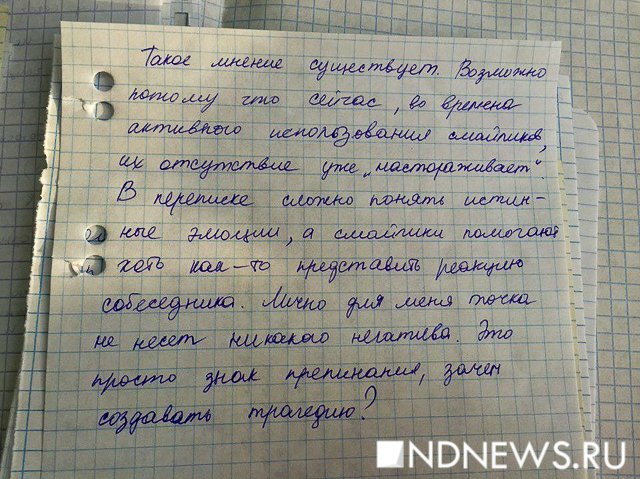 Такое мнение существует. Возможно
потому что сейчас, во времена
активного использования смайликов,
их отсутствие уже „настораживает“.
В переписке сложно понять истин-
ные эмоции, а смайлики помогают
хоть как-то представить реакцию
собеседника. Лично для меня точка
не несет никакого негатива. Это
просто знак препинания, зачем
создавать трагедию?
NDNEWS.RU